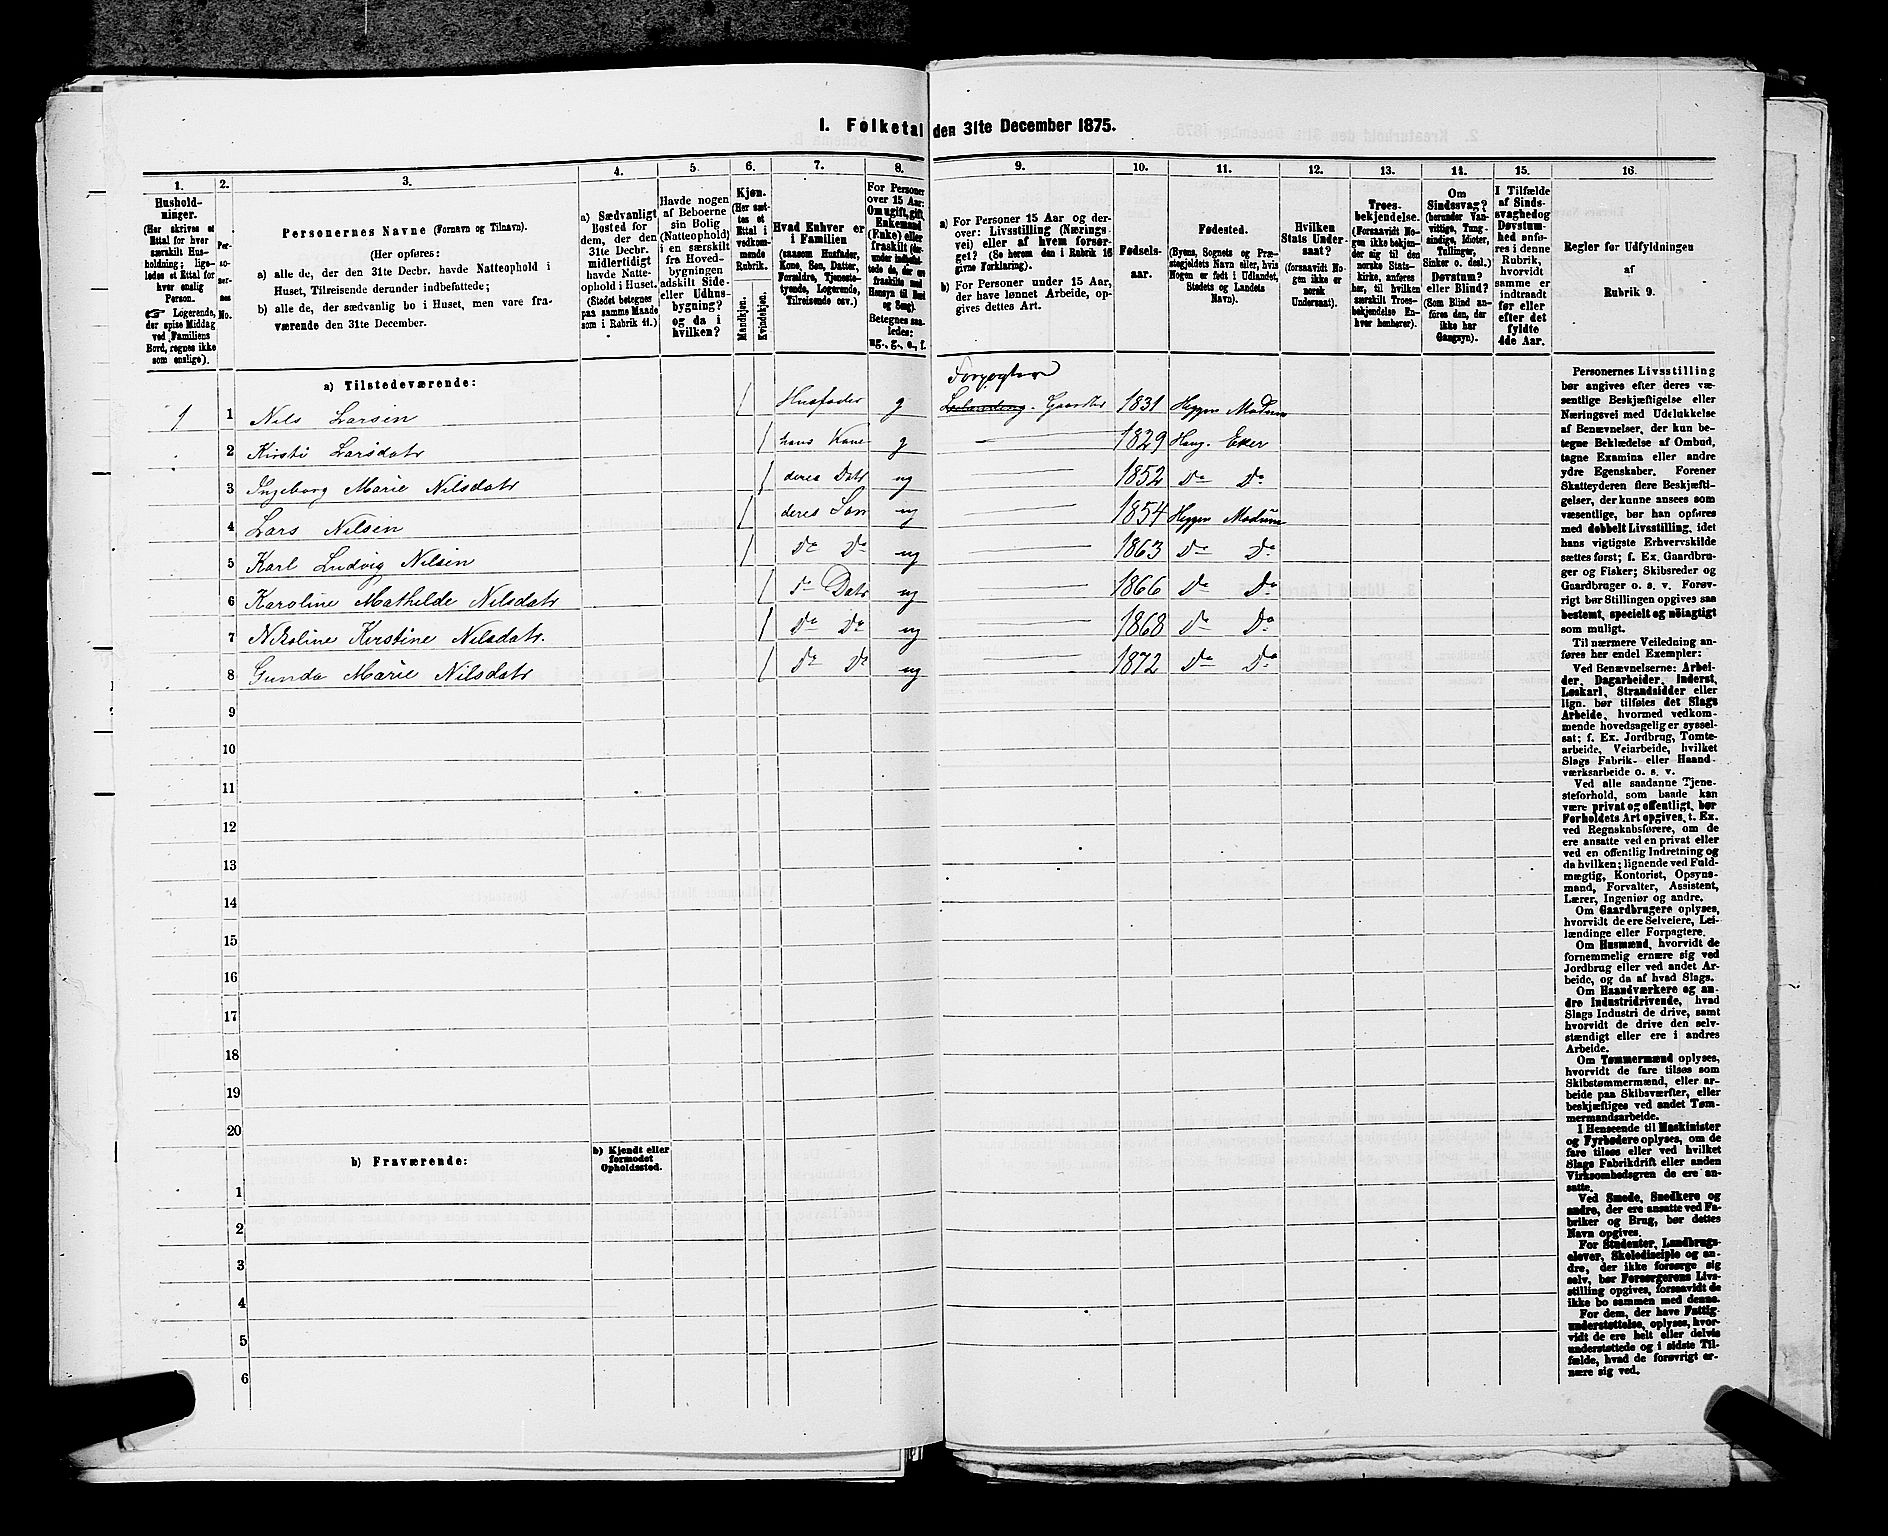 1. Folketal den 31te December 1875.
1. 2. 3. 4. 5. 6. 7. 8. 9. 10. 11. 12. 13. 14. 15. 16.
Hushold-
ninger.
(Her skrives et
Ettal for hver
særskilt Hus-
holdning; lige-
ledes et Ettal for
hver enslig
Person.
☞ Logerende,
der spise Middag
ved Familiens
Bord, regnes ikke
som enslige).
Per-
so-
ner-
nes
No.
Personernes Navne (Fornavn og Tilnavn).
(Her opføres:
a) alle de, der den 31te Decbr. havde Natteophold i
Huset, Tilreisende derunder indbefattede;
b) alle de, der sædvanlig bo i Huset, men vare fra-
værende den 31te December.
a) Sædvanligt
Bosted for
dem, der den
31te Decbr.
midlertidigt
havde Natte-
ophold i Huset.
(Stedet betegnes
paa samme Maade
som i Rubrik 11.)
Havde nogen
af Beboerne
sin Bolig
(Natteophold)
i en særskilt
fra Hoved-
bygningen
adskilt Side-
eller Udhus-
bygning?
og da i
hvilken?
Kjøn.
(Her sæt-
tes et
Ettal i
vedkom-
mende
Rubrik.
Mandkjøn.
Kvindekjøn.
Hvad Enhver er
i Familien
(saasom Husfader,
Kone, Søn, Datter,
Forældre, Tjeneste-
tyende, Logerende,
Tilreisende osv.)
For Personer
over 15 Aar:
Om ugift, gift,
Enkemand
(Enke) eller
fraskilt
Betegnes saa-
ledes:
ug., g., e., f.
a) For Personer 15 Aar og der-
over: Livsstilling (Nærings-
vei) eller af hvem forsør-
get? (Se herom den i Rubrik 16
givne Forklaring).
b) For Personer under 15 Aar,
der have lønnet Arbeide, op-
gives dettes Art.
Fødsels-
aar.
Fødested.
(Byens, Sognets og Præ-
stegjeldets Navn eller, hvis
Nogen er født i Udlandet,
Stedets og Landets
Navn).
Hvilken
Stats Under-
saat?
(forsaavidt No-
gen ikke er
norsk
Undersaat).
Troes-
bekjendelse.
(Forsaavidt No-
gen ikke bekjen-
der sig til den
norske Stats-
kirke, anføres
her, til hvilken
særskilt Troes-
bekjendelse En-
hver henhører).
Om
Sindssvag?
(herunder Van-
vittige, Tung-
sindige, Idioter,
Tullinger,
Sinker o. desl.)
Døvstum?
eller Blind?
(Som Blind an-
føres den, der
ikke har
Gangsyn).
I Tilfælde
af Sinds-
svaghed og
Døvstum-
hed anfø-
res i denne
Rubrik,
hvorvidt
samme er
indtraadt
før eller
efter det
fyldte
4de Aar.
Regler for Udfyldningen
af
Rubrik 9.
a) Tilstedeværende:
Forpagter
1 1 Nils Larsen 1 Husfader g Gaardbr 1831 Heggen Modum
2 Kirsti Larsdatr 1 hans Kone g 1829 Houg. Eker
3 Ingeborg Marie Nilsdatr 1 deres Datr ug 1852 Do Do
4 Lars Nilsen 1 deres Søn ug 1854 Heggen Modum
5 Karl Ludvig Nilsen 1 Do Do ug 1863 Do Do
6 Karoline Mathilde Nilsdatr 1 Do Datr ug 1866 Do Do
7 Nikoline Kirstine Nilsdatr. 1 Do Do ug 1868 Do Do
8 Gunda Marie Nilsdatr 1 Do Do ug 1872 Do Do
9
10
11
12
13
14
15
16
17
18
19
20
b) Fraværende:
b) Kjendt eller
formodet
Opholdssted.
1
2
3
4
5
6
Personernes Livsstilling
bør angives efter deres væ-
sentlige Beskjæftigelse eller
Næringsvei med Udelukkelse
af Benævnelser, der kun be-
tegne Beklædelse af Ombud,
tagne Examina eller andre
ydre Egenskaber. Forener
Skatteyderen flere Beskjæfti-
gelser, der kunne ansees som
væsentlige, bør han opføres
med dobbelt Livsstilling, idet
hans vigtigste Erhvervskilde
sættes først; f. Ex. Gaardbru-
ger og Fisker; Skibsreder og
Gaardbruger o. s. v. Forøv-
rigt bør Stillingen opgives saa
bestemt, specielt og nøiagtigt
som muligt.
Til nærmere Veiledning an-
føres her endel Exempler:
Ved Benævnelserne: Arbei-
der, Dagarbeider, Inderst,
Løskarl, Strandsidder eller
lign. bør tilføies det Slags
Arbeide, hvormed vedkom-
mende hovedsagelig er syssel-
sat; f. Ex. Jordbrug, Tomte-
arbeide, Veiarbeide, hvilket
Slags Fabrik- eller Haand-
værksarbeide o. s. v.
Ved alle saadanne Tjene-
steforhold, som baade kan
være privat og offentligt, bør
Forholdets Art opgives, t. Ex.
ved Regnskabsførere, om de
ere ansatte ved en privat eller
ved en offentlig Indretning og
da hvilken; lignende ved Fuld-
mægtig, Kontorist, Opsyns-
mand, Forvalter, Assistent,
Lærer, Ingeniør og andre.
Om Gaardbrugere oplyses,
hvorvidt de ere Selveiere, Lei-
lændinge eller Forpagtere.
Om Husmænd, hvorvidt de
fornemmelig ernære sig ved
Jordbrug eller ved andet Ar-
beide, og da af hvad Slags.
Om Haandværkere og an-
dre Industridrivende, hvad
Slags Industri de drive, samt
hvorvidt de drive den selv-
stændigt eller ere i andres
Arbeide.
Om Tømmermænd oplyses,
hvorvidt de fare tilsøs som
Skibstømmermænd, eller ar-
beide paa Skibsværfter, eller
beskjæftiges ved andet Tøm-
mermandsarbeide.
I Henseende til Maskinister
og Fyrbødere oplyses, om de
fare tilsøs eller ved hvilket
Slags Fabrikdrift eller anden
Virksomhedsgren de ere an-
satte.
Ved Smede, Snedkere og
andre, der ere ansatte ved Fa-
briker og Brug, bør dettes
Navn opgives.
For Studenter, Landbrugs-
elever, Skoledisciple og an-
dre, der ikke forsørge sig
selv, bør Forsørgerens Livs-
stilling opgives, forsaavidt de
ikke bo sammen med denne.
For dem, der have Fattig-
understøttelse, oplyses, hvor-
vidt de ere helt eller delvis
understøttede og i sidste Til-
fælde, hvad de forøvrigt er-
nære sig ved.